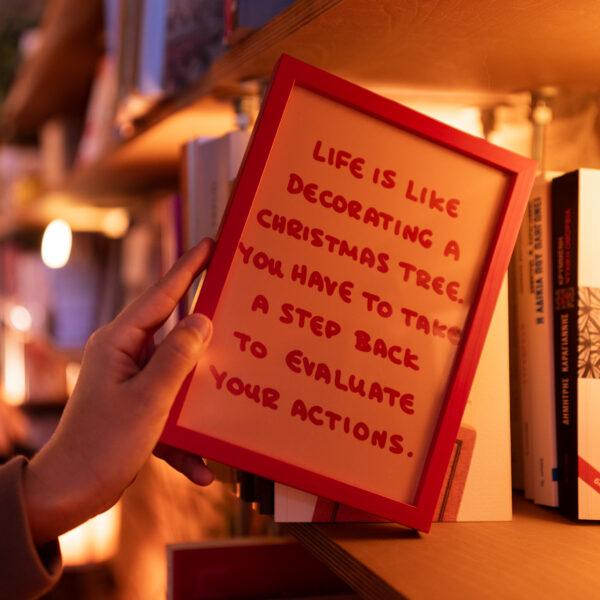 LIFE IS LIKE
DECORATING A
CHRISTMAS TREE.
YOU HAVE TO TAKE
A STEP BACK
TO EVALUATE
YOUR ACTIONS.
Η ΑΔΙΚΙΑ ΠΟΥ ΠΛΗΓΩΝΕΙ
ΔΗΜΗΤΡΗΣ ΚΑΡΑΓΙΑΝΝΗΣ